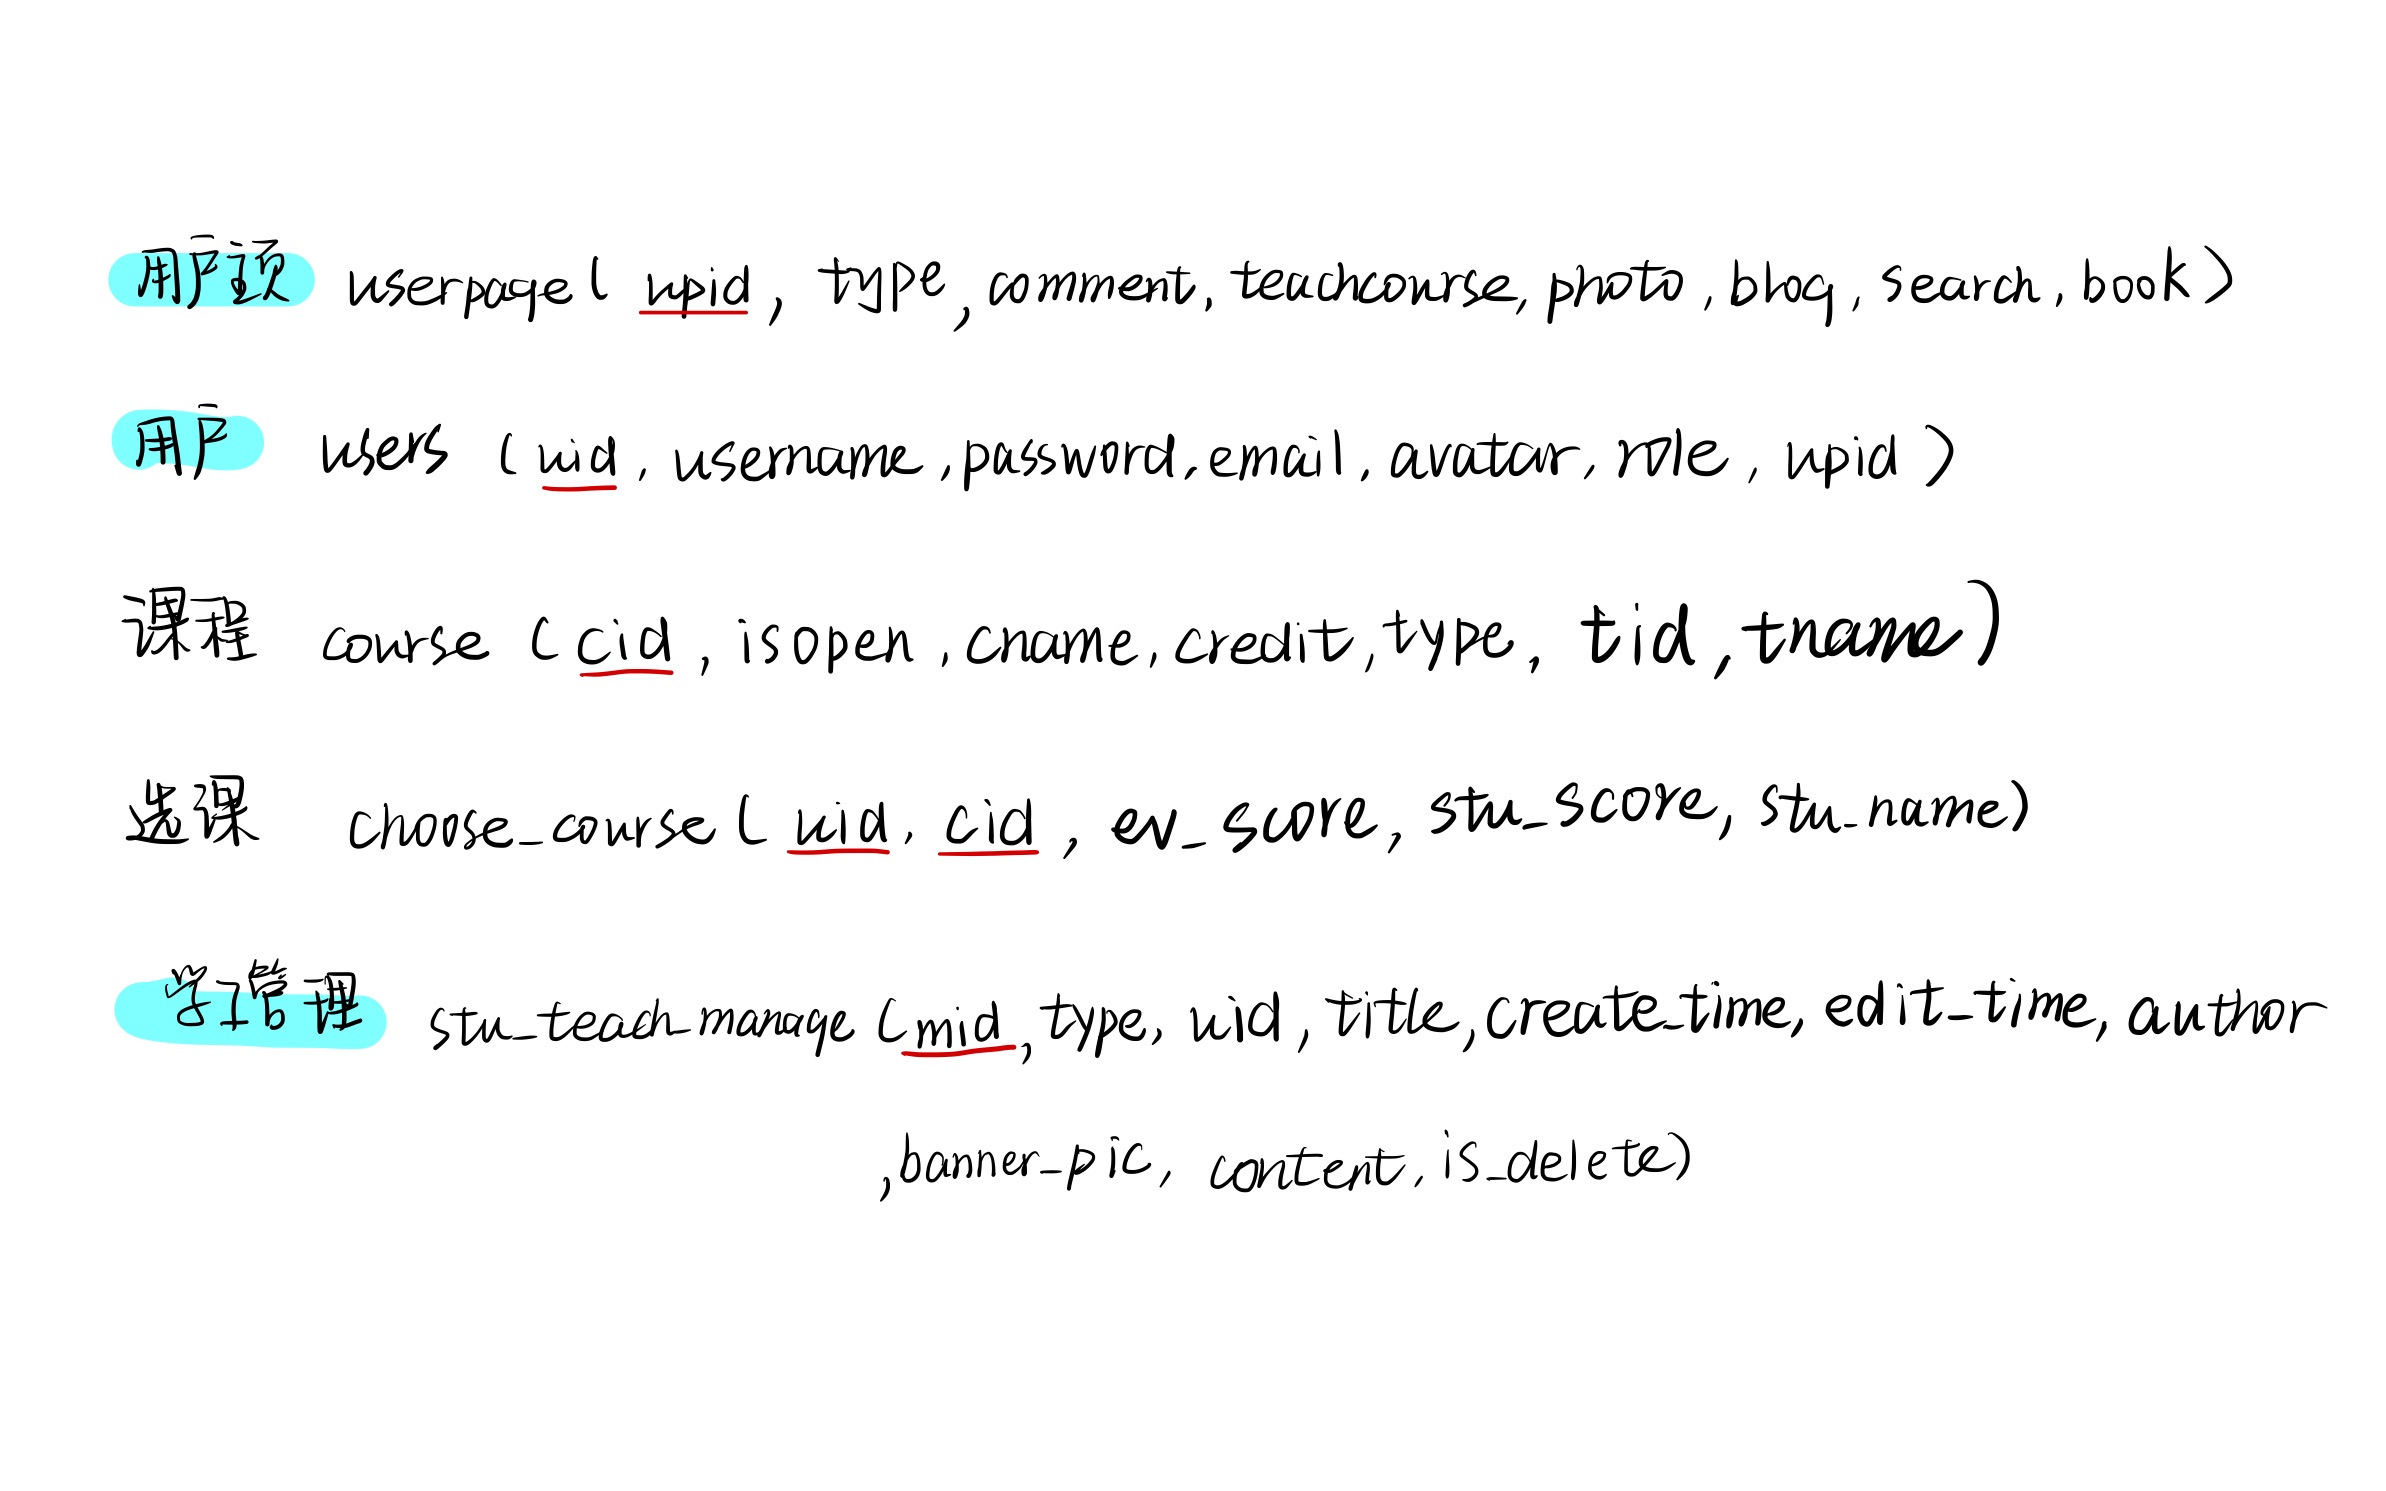 用户页 userpage ( upid, type, comment, teachcourse, photo, bhoq, search, book )
用户 users ( uid, username, password, email, avatar, role, upid )
课程 course ( cid, isopen, cname, credit, type, tid, tname )
选课 choose_course ( uid, cid, ev_score, stu_score, stu_name )
学工管理 stu_teach_manage ( mid, type, uid, title, create_time, edit_time, author
, banner_pic, content, is_delete )